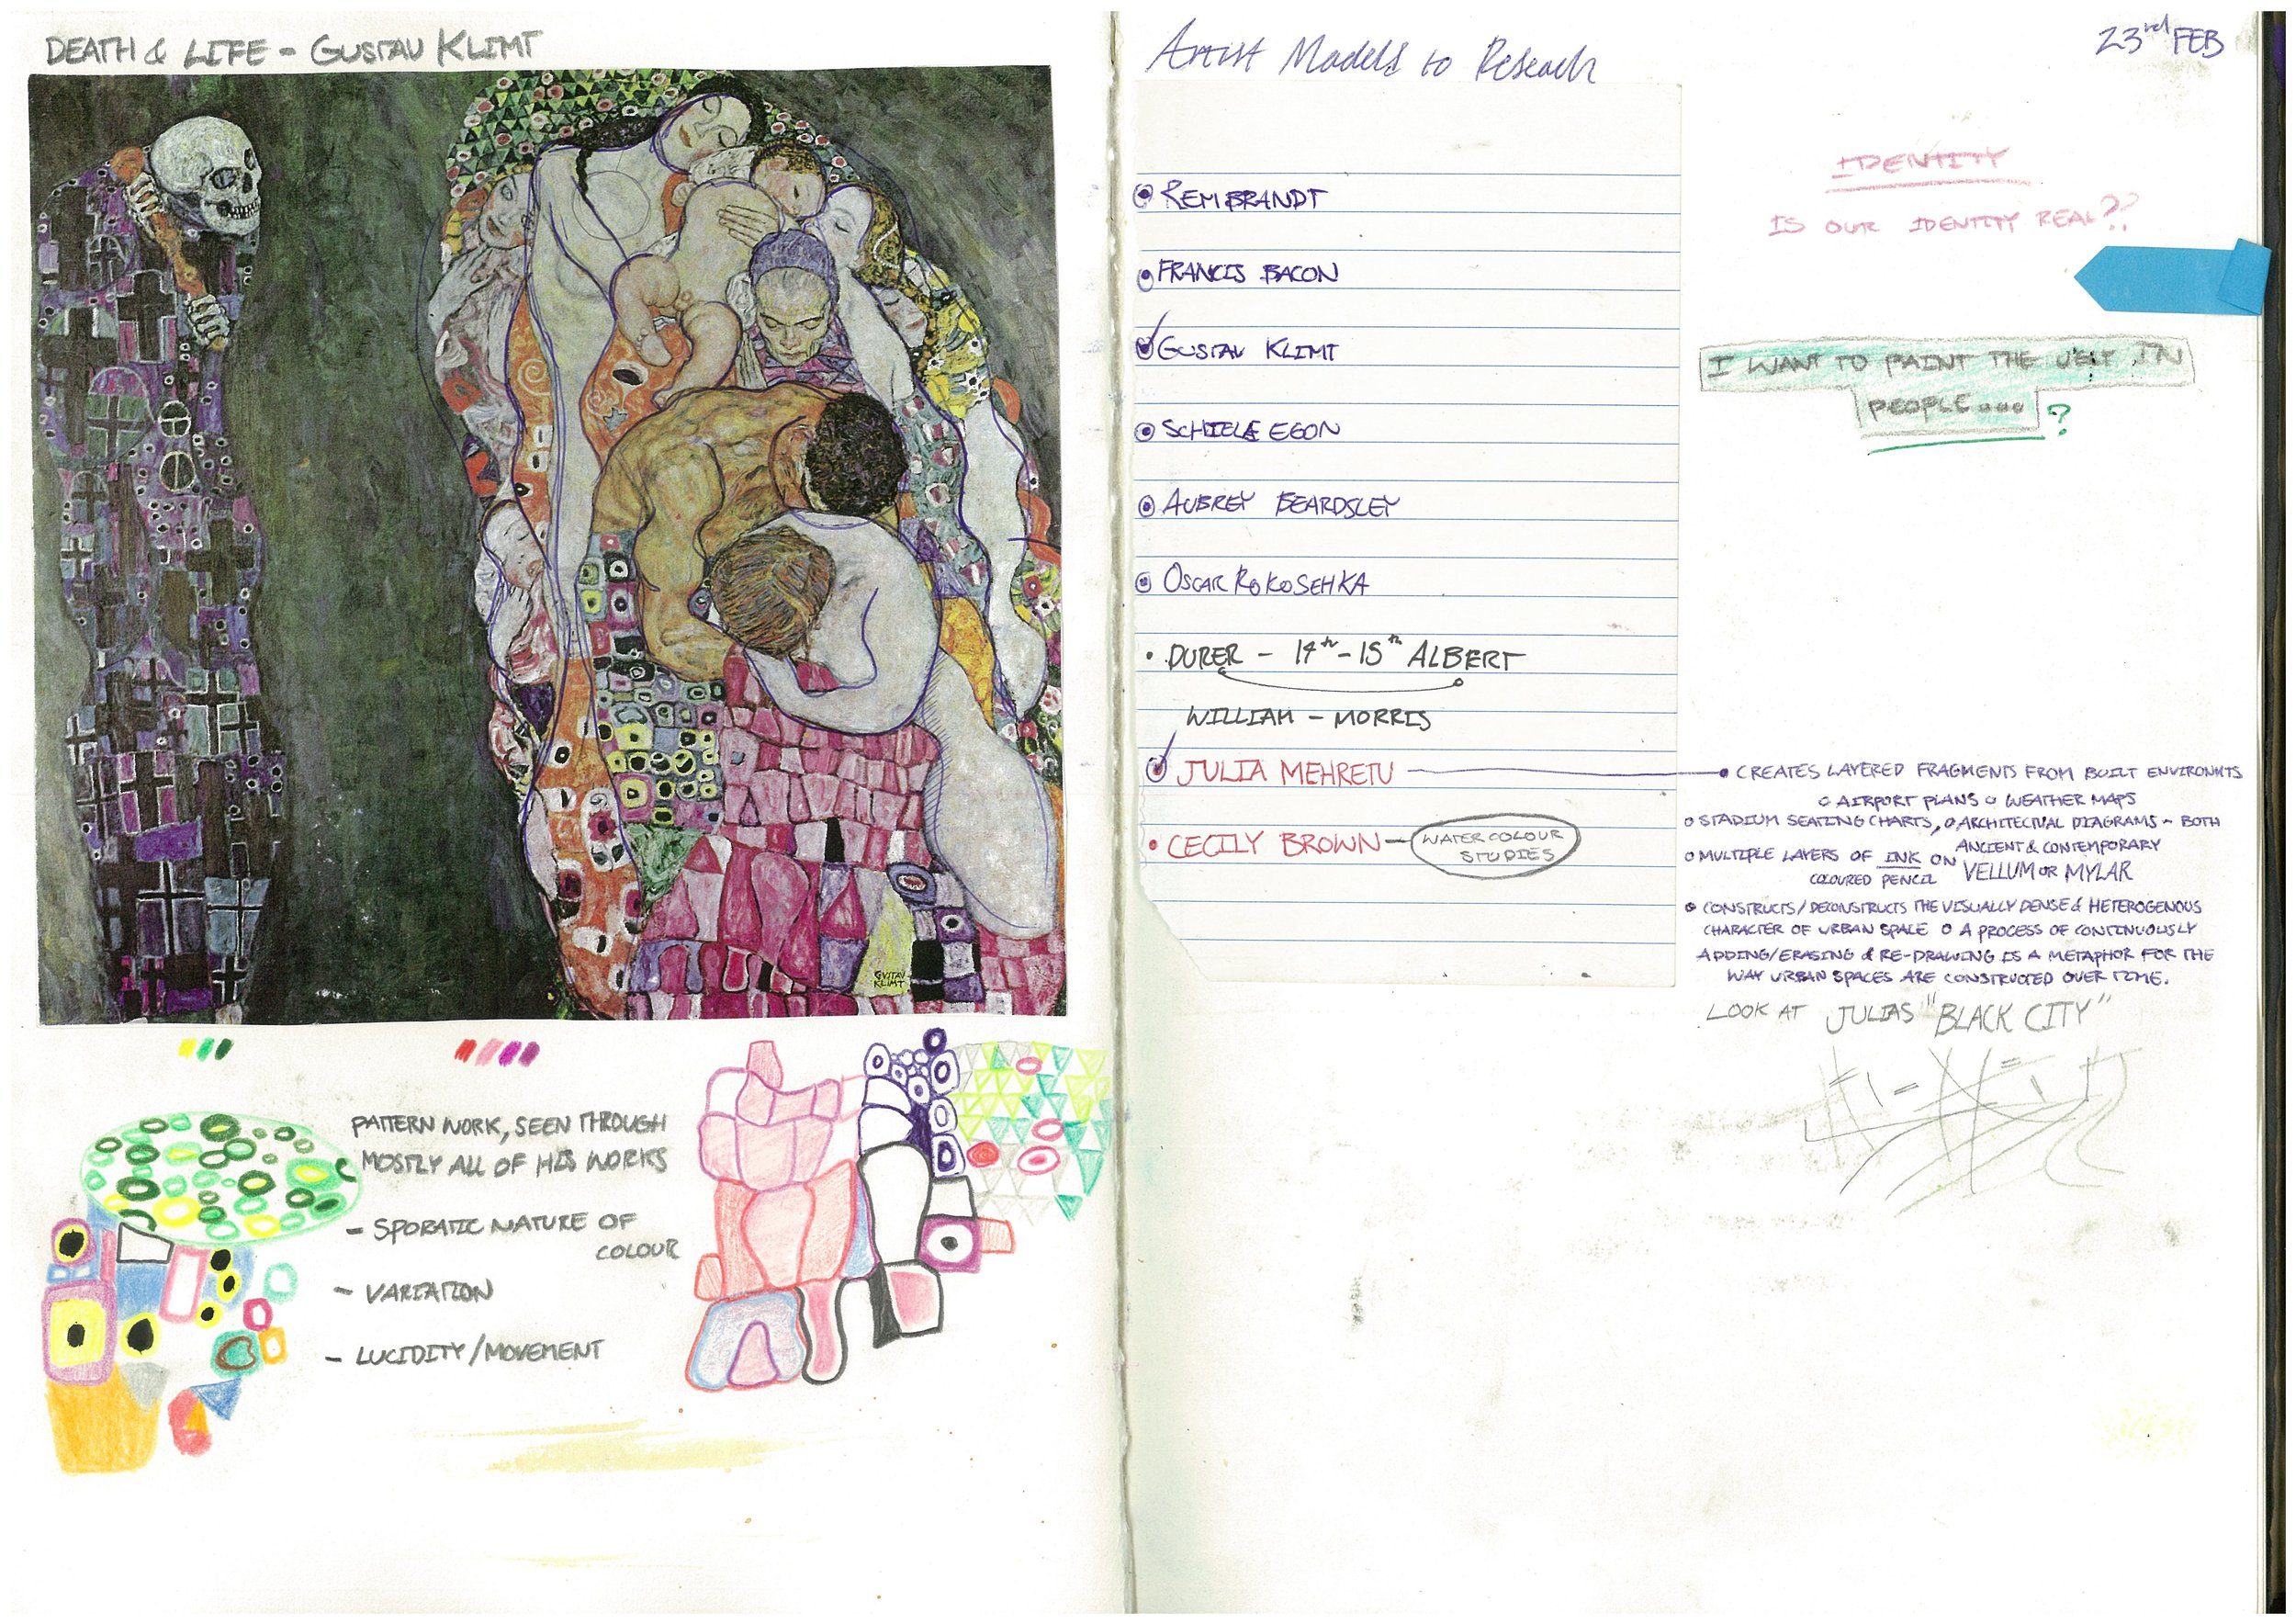 DEATH & LIFE - GUSTAV KLIMT
GUSTAV
KLIMT
PATTERN WORK, SEEN THROUGH
MOSTLY ALL OF HIS WORKS
- SPORATIC NATURE OF
COLOUR
- VARIATION
- LUCIDITY/MOVEMENT
Artist Models to Reseach
23rd FEB
REMBRANDT
FRANCIS BACON
GUSTAV KLIMT
SCHIELE EGON
AUBREY BEARDSLEY
OSCAR KOKOSEHKA
DURER - 14th-15th ALBERT
WILLIAM - MORRIS
JULIA MEHRETU
CECILY BROWN - WATER COLOUR
STUDIES
IDENTITY
IS OUR IDENTITY REAL??
I WANT TO PAINT THE UGLY IN
PEOPLE... ?
CREATES LAYERED FRAGMENTS FROM BUILT ENVIRONMTS
AIRPORT PLANS WEATHER MAPS
STADIUM SEATING CHARTS, ARCHITECTUAL DIAGRAMS - BOTH
ANCIENT & CONTEMPORARY
MULTIPLE LAYERS OF INK ON VELLUM OR MYLAR
COLOURED PENCIL
CONSTRUCTS/DECONSTRUCTS THE VISUALLY DENSE & HETEROGENOUS
CHARACTER OF URBAN SPACE A PROCESS OF CONTINUOUSLY
ADDING/ERASING & RE-DRAWING IS A METAPHOR FOR THE
WAY URBAN SPACES ARE CONSTRUCTED OVER TIME.
LOOK AT JULIAS "BLACK CITY"